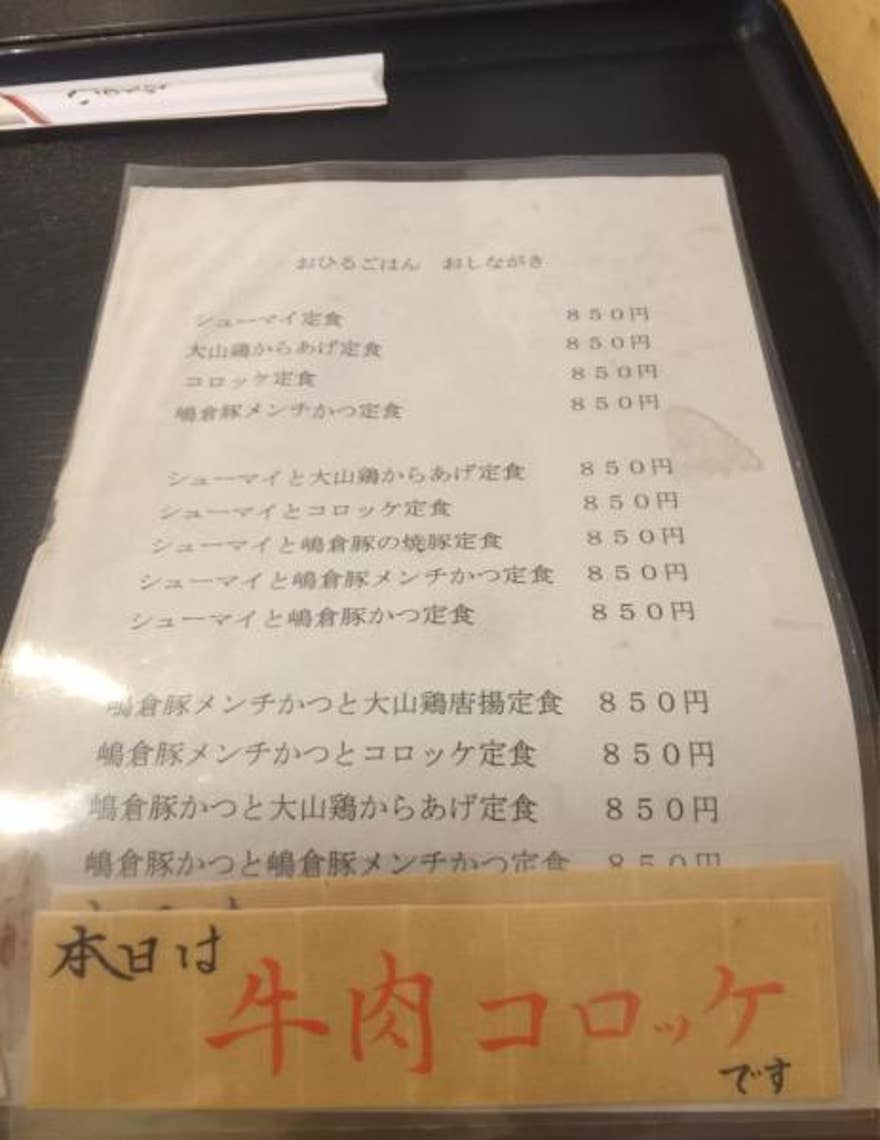 おひるごはん　おしながき
シューマイ定食　８５０円
大山鶏からあげ定食　８５０円
コロッケ定食　８５０円
嶋倉豚メンチかつ定食　８５０円
シューマイと大山鶏からあげ定食　８５０円
シューマイとコロッケ定食　８５０円
シューマイと嶋倉豚の焼豚定食　８５０円
シューマイと嶋倉豚メンチかつ定食　８５０円
シューマイと嶋倉豚かつ定食　８５０円
嶋倉豚メンチかつと大山鶏唐揚定食　８５０円
嶋倉豚メンチかつとコロッケ定食　８５０円
嶋倉豚かつと大山鶏からあげ定食　８５０円
嶋倉豚かつと嶋倉豚メンチかつ定食　８５０円
本日は
牛肉コロッケ
です